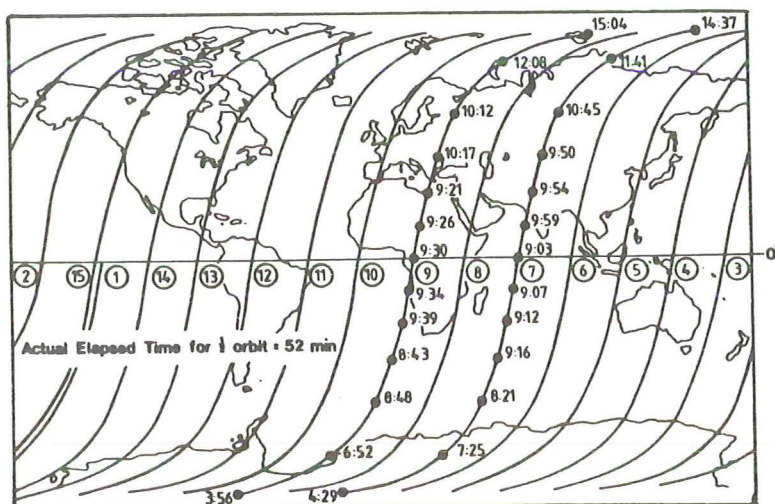 15:04
14:37
12:08
11:41
10:12
10:45
10:17
9:50
9:21
9:54
9:26
9:59
9:30
9:03
0
2 15 1 14 13 12 11 10 9 8 7 6 5 4 3
9:34
9:07
9:39
9:12
Actual Elapsed Time for ½ orbit = 52 min
8:43
9:16
8:48
8:21
6:52
7:25
3:56
4:29